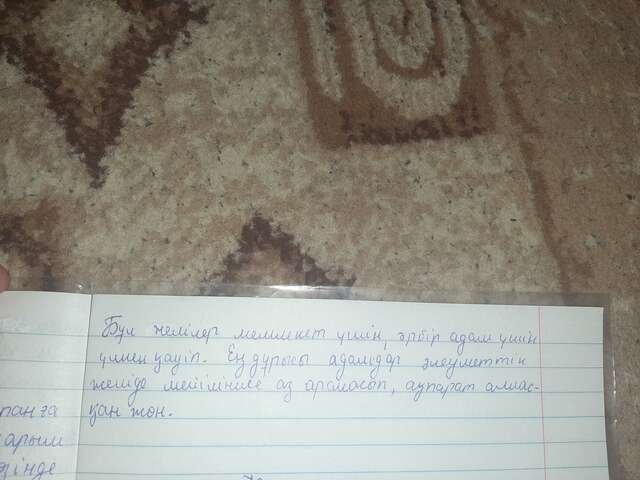 Бұл желілер мемлекет үшін, әрбір адам үшін
үлкен қауіп. Ең дұрысы адамдар әлеуметтік
желіде мейлінше аз араласып, ақпарат алмас-
қан жөн.
ранға
арым
зінде